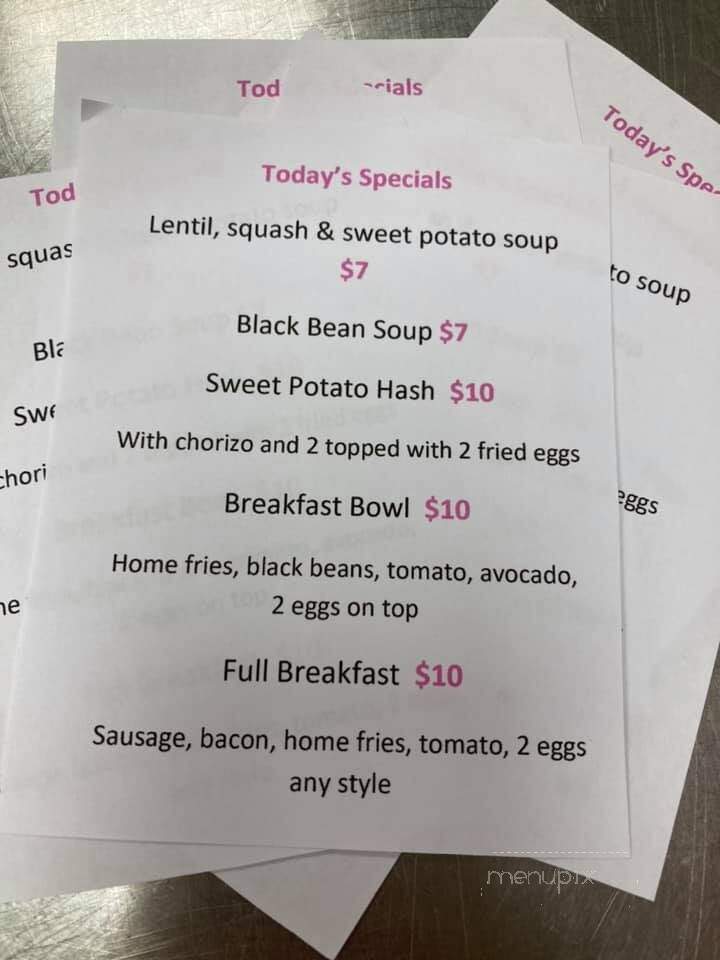 Tod
cials
Today's Spe
Tod
Today's Specials
squas
Lentil, squash & sweet potato soup
to soup
$7
Bla
Black Bean Soup $7
Swe
Sweet Potato Hash $10
chori
With chorizo and 2 topped with 2 fried eggs
eggs
Breakfast Bowl $10
Home fries, black beans, tomato, avocado,
2 eggs on top
Full Breakfast $10
Sausage, bacon, home fries, tomato, 2 eggs
any style
menupix